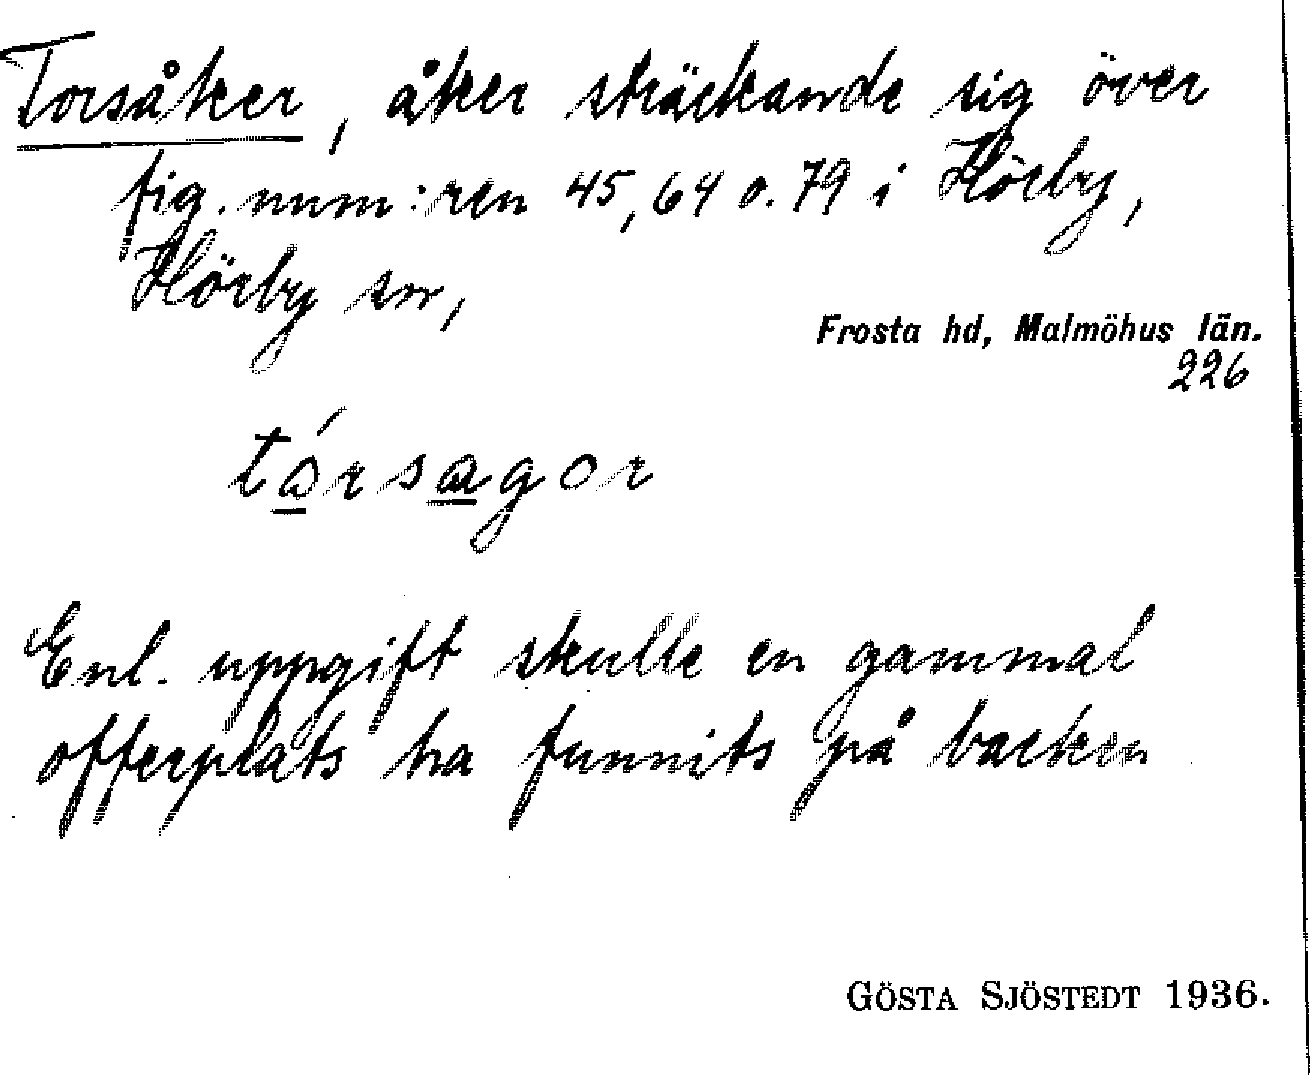 Torsåker, åker sträckande sig över
fig. num:ren 45, 64 o. 79 i Hörby,
Hörby sn,
Frosta hd, Malmöhus län.
226
tårsagor
Enl. uppgift skulle en gammal
offerplats ha funnits på backen
GÖSTA SJÖSTEDT 1936.